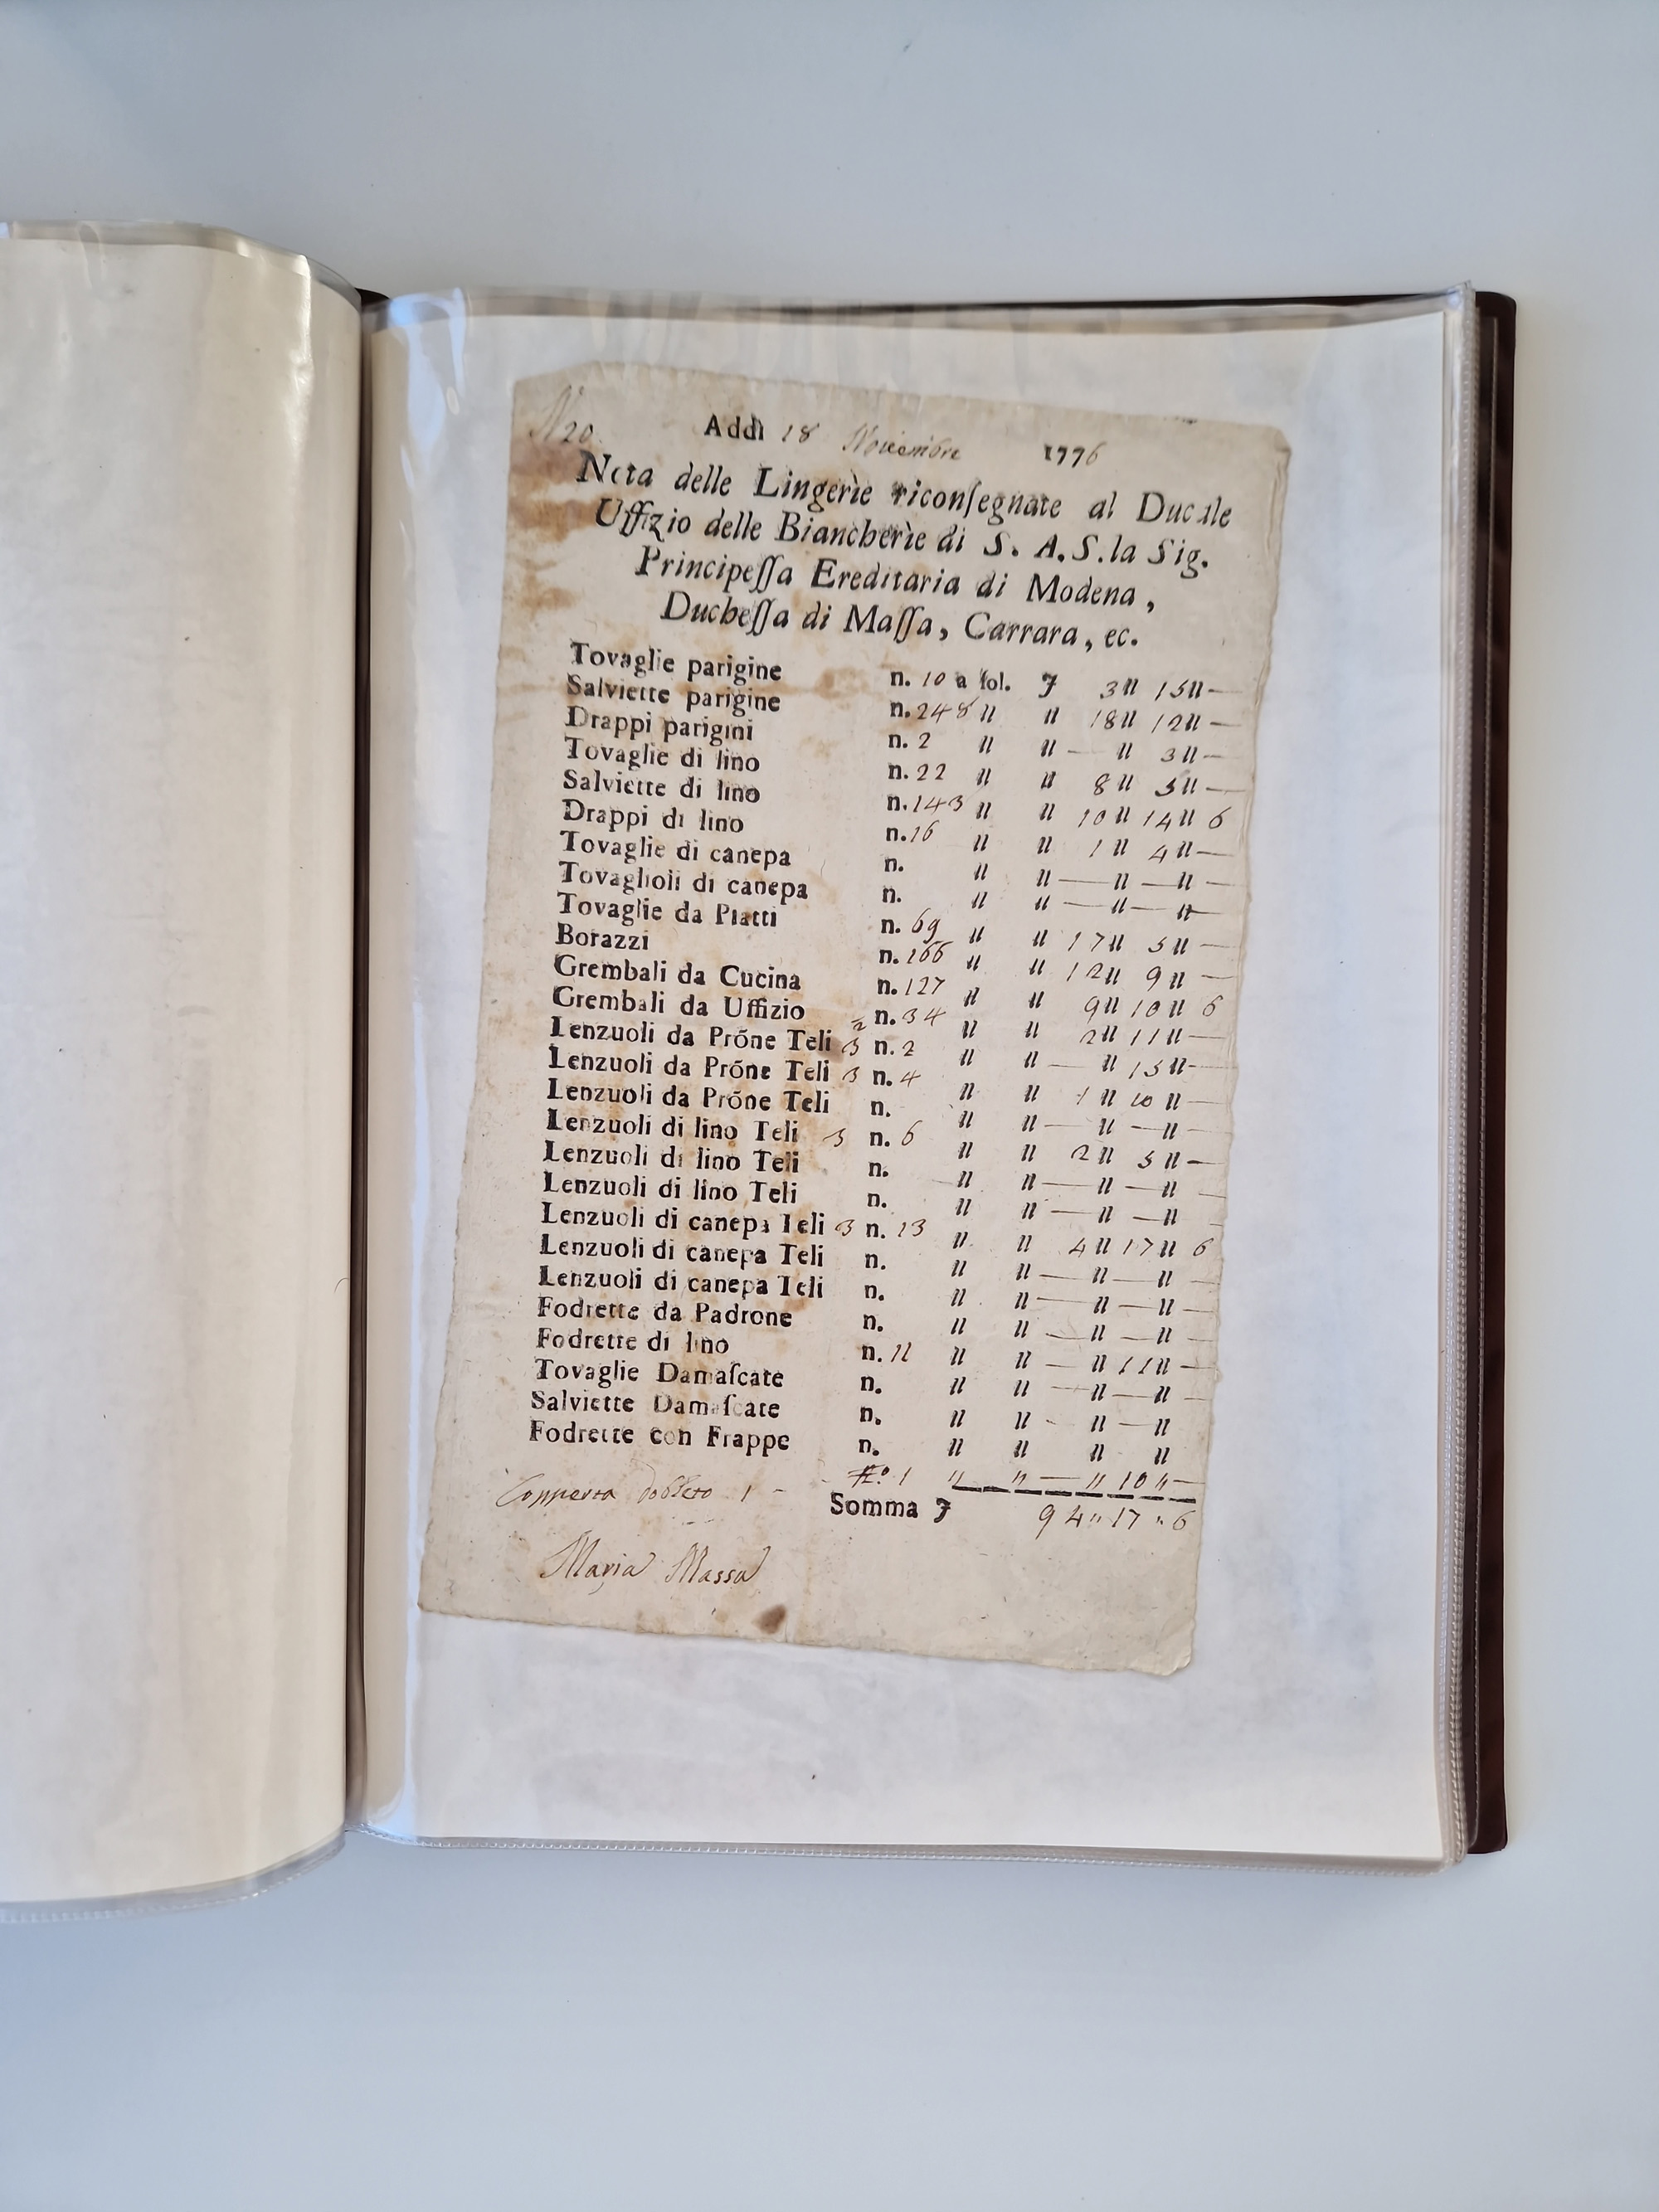 N 20. Addì 18 Novembre 1776
Nota delle Lingerìe riconſegnate al Ducale
Uffizio delle Biancherìe di S. A. S. la Sig.
Principeſſa Ereditaria di Modena,
Ducheſſa di Maſſa, Carrara, ec.
Tovaglie parigine n. 10 a ſol. 3 〃 15 〃 —
Salviette parigine n. 248 〃 〃 18 〃 12 〃 —
Drappi parigini n. 2 〃 〃 — 〃 3 〃 —
Tovaglie di lino n. 22 〃 〃 8 〃 5 〃 —
Salviette di lino n. 143 〃 〃 10 〃 14 〃 6
Drappi di lino n. 16 〃 〃 1 〃 4 〃 —
Tovaglie di canepa n. 〃 〃 — 〃 — 〃 —
Tovaglioli di canepa n. 〃 〃 — 〃 — 〃 —
Tovaglie da Piatti n. 69 〃 〃 17 〃 5 〃 —
Borazzi n. 166 〃 〃 12 〃 9 〃 —
Grembali da Cucina n. 127 〃 〃 9 〃 10 〃 6
Grembali da Uffizio n. 34 〃 〃 2 〃 11 〃 —
Lenzuoli da Prõne Teli 3 n. 2 〃 〃 — 〃 15 〃 —
Lenzuoli da Prõne Teli 3 n. 4 〃 〃 1 〃 10 〃 —
Lenzuoli da Prõne Teli n. 〃 〃 — 〃 — 〃
Lenzuoli di lino Teli 3 n. 6 〃 〃 2 〃 5 〃 —
Lenzuoli di lino Teli n. 〃 〃 — 〃 — 〃 —
Lenzuoli di lino Teli n. 〃 〃 — 〃 — 〃 —
Lenzuoli di canepa Teli 3 n. 13 〃 〃 4 〃 17 〃 6
Lenzuoli di canepa Teli n. 〃 〃 — 〃 — 〃 —
Lenzuoli di canepa Teli n. 〃 〃 — 〃 — 〃 —
Fodrette da Padrone n. 〃 〃 — 〃 — 〃 —
Fodrette di lino n. 11 〃 〃 — 〃 11 〃 —
Tovaglie Damaſcate n. 〃 〃 — 〃 — 〃 —
Salviette Damaſcate n. 〃 〃 - 〃 — 〃
Fodrette con Frappe n. 〃 〃 〃 〃
Copperta dobleto 1 - n.º 1 〃 〃 — 〃 10 〃 —
Somma 94 〃 17 〃 6
Maria Massa